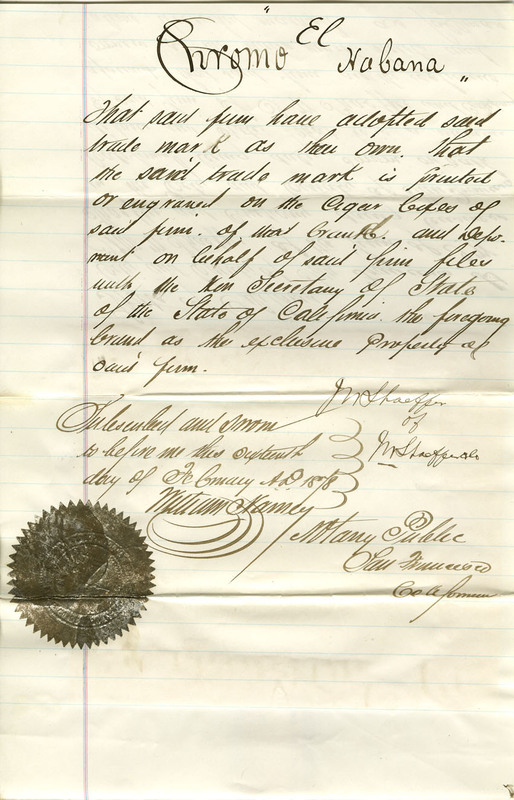 " Chromo El Habana "
That said firm have adopted said
trade mark as their own. That
the said trade mark is printed
or engraved on the Cigar boxes of
said firm. of said brand. and depo-
nent on behalf of said firm files
with the Hon Secretary of State
of the State of California the foregoing
brand as the exclusive Property of
said firm.
J W Shaeffer
of
J W Shaeffer & Co
Subscribed and sworn
to before me this sixteenth
day of February A.D. 1878
William Harney
Notary Public
San Francisco
California